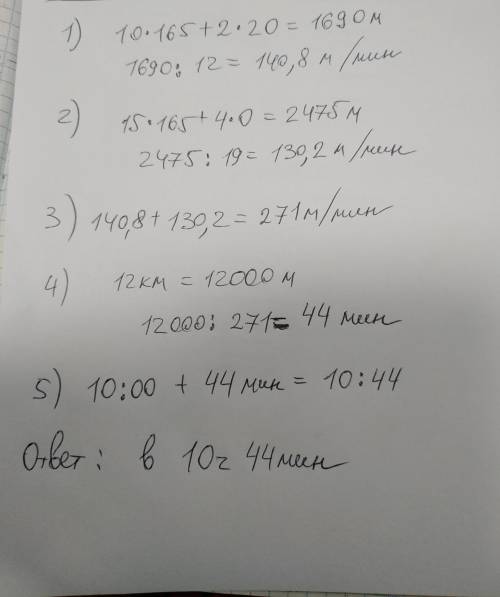 1) 10·165+2·20 = 1690 м
1690 : 12 = 140,8 м/мин
2) 15·165+4·0 = 2475 м
2475 : 19 = 130,2 м/мин
3) 140,8 + 130,2 = 271 м/мин
4) 12 км = 12000 м
12000 : 271 = 44 мин
5) 10:00 + 44 мин = 10:44
Ответ: в 10ч 44 мин